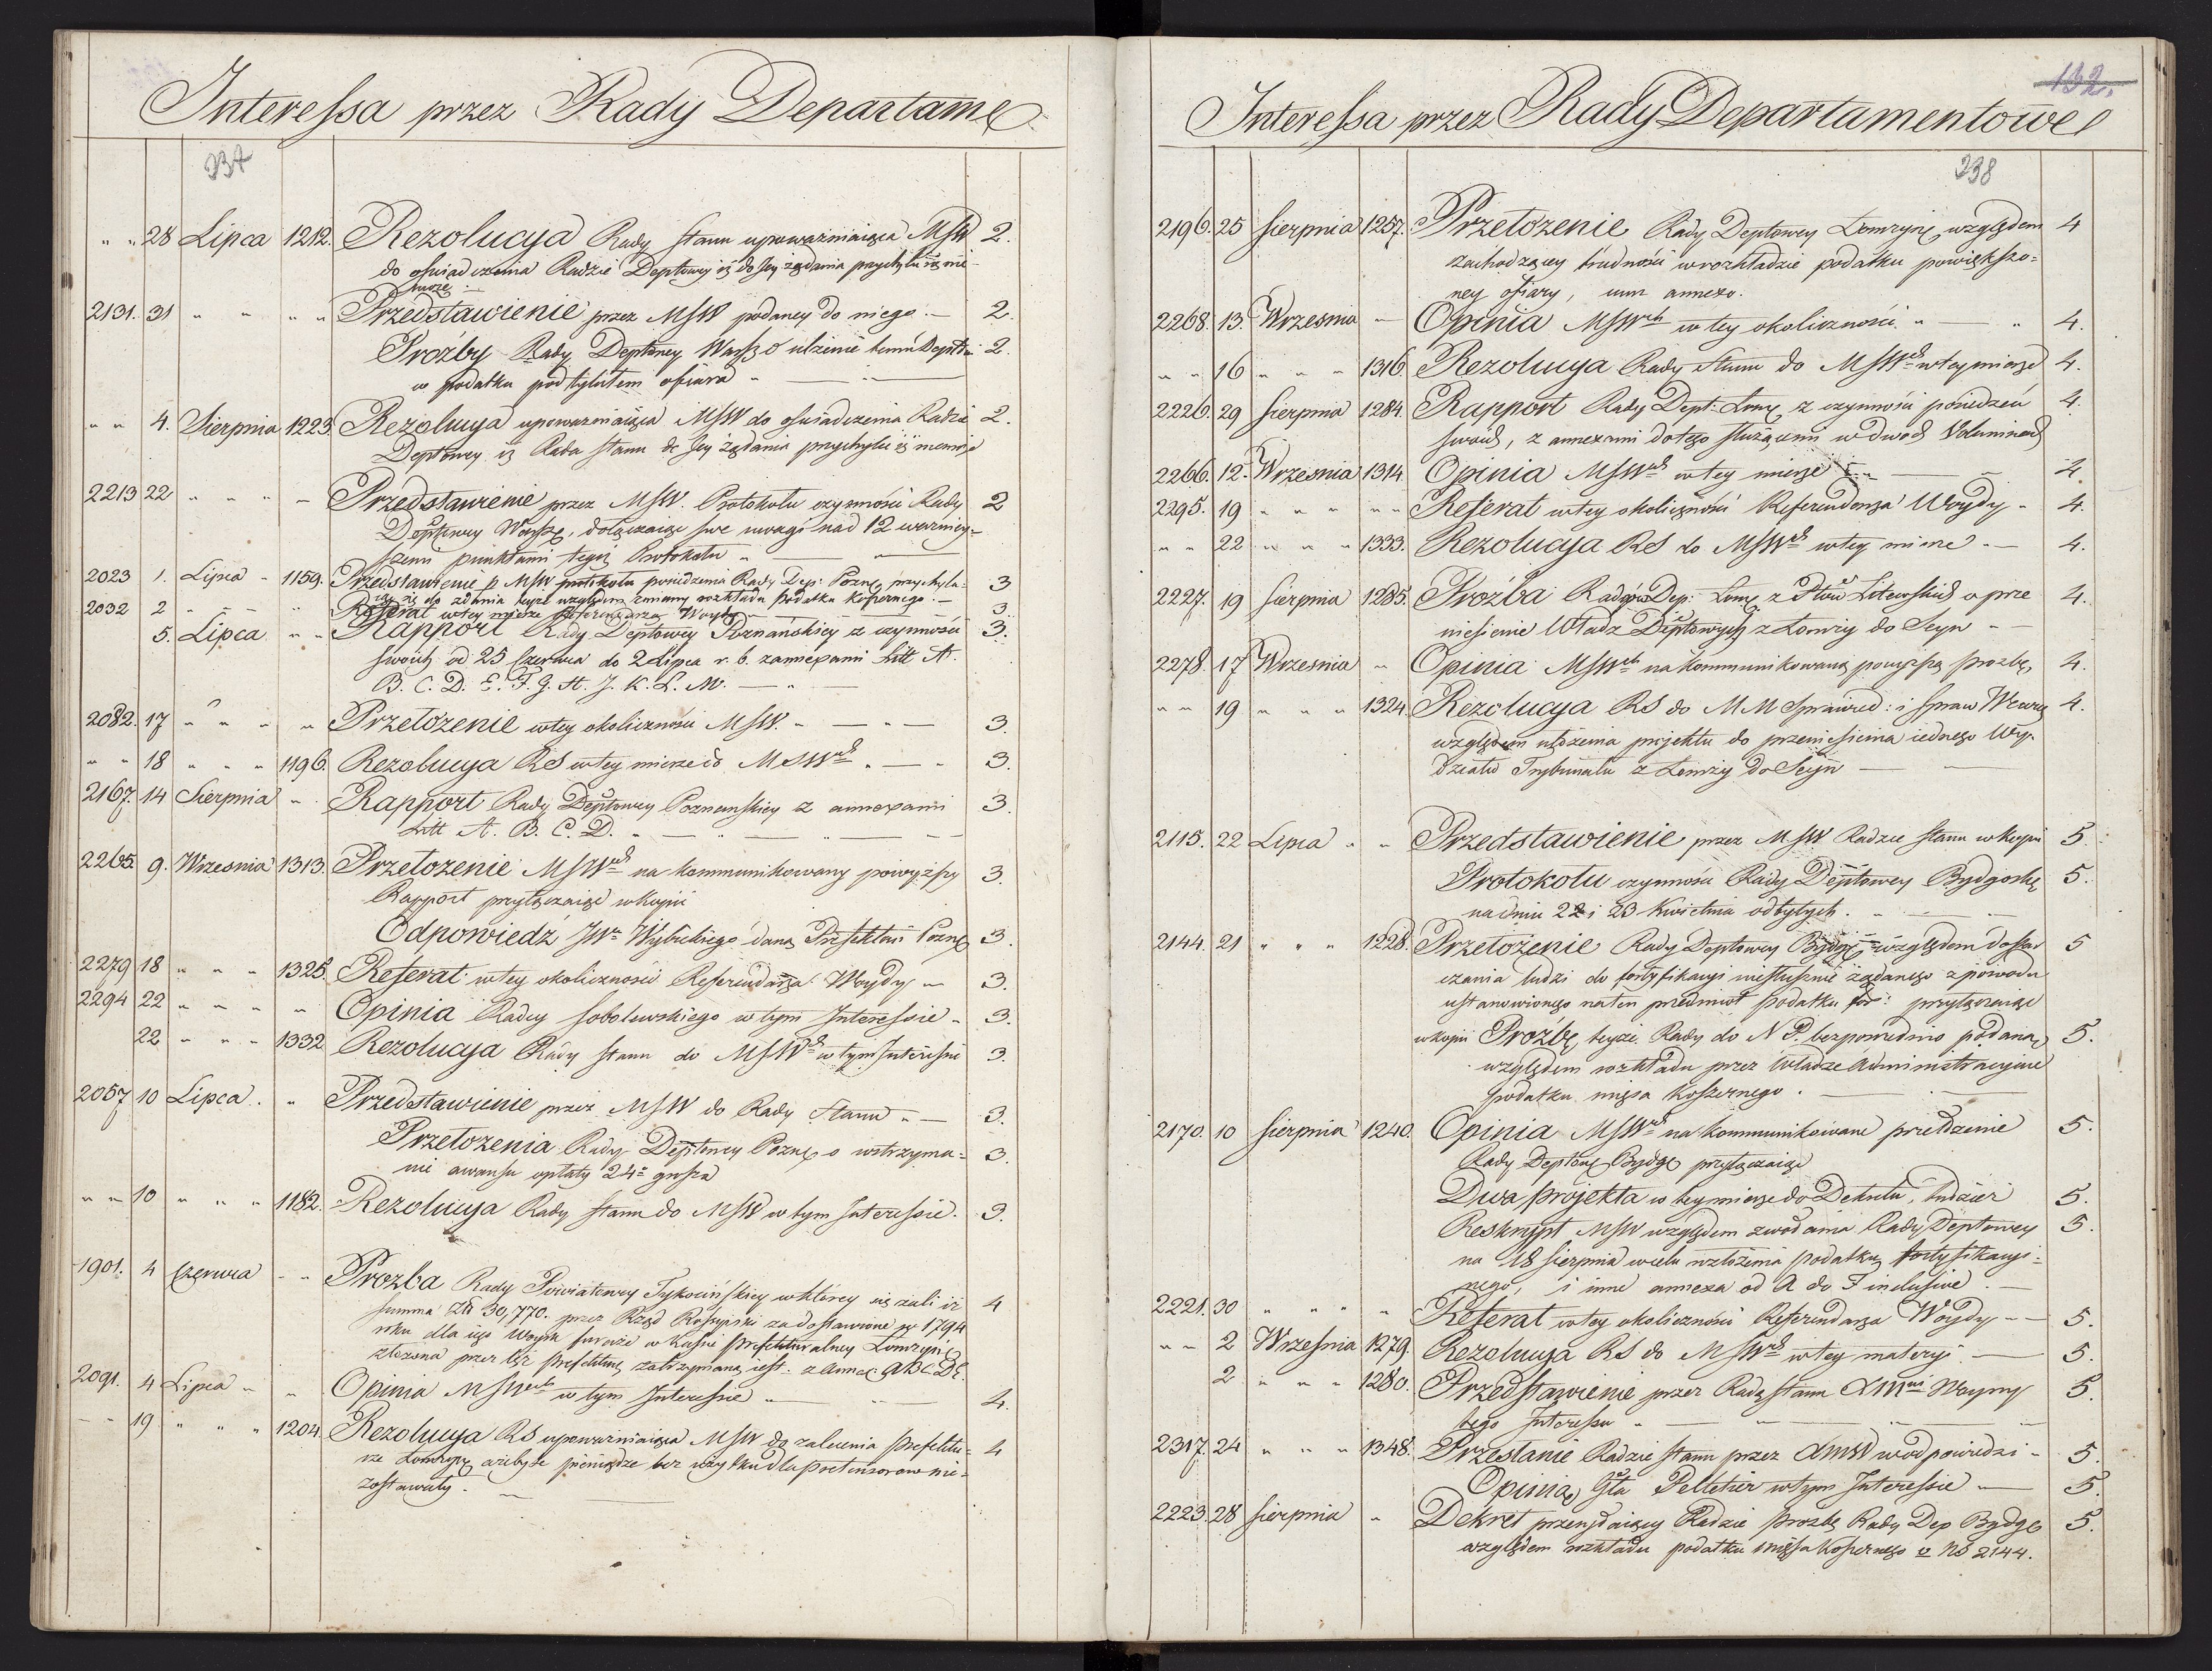 Interessa przez Rady Departame
237
" " 28 Lipca 1212. Rezolucya Rady Stanu upoważniaiąca MSW 2.
do oświadczenia Radzie Deptowey iż do Jey żądania przychylić się nie
może.
2131. 31 " " " " Przedstawienie przez MSW podaney do niego. — 2.
Proźby Rady Deptowey Warsz o ulżenie temuż Deptwi 2.
w podatku pod tytułem ofiara " — " —
" " 4. Sierpnia 1223. Rezolucya upoważniaiąca MSW do oświadczenia Radzie 2.
Deptowey iż Rada Stanu do Jey żądania przychylić się niemoże
2213 22 " " " — Przedstawienie przez MSW. Protokołu czynności Rady 2
Deptowey Warsz, dołączaiąc swe uwagi nad 12 ważniey-
szemi punktami tegoż Protokołu " —
2023 1. Lipca " 1159. Przedstawienie p MSW protokołu posiedzenia Rady Dep: Pozn, przychyla- 3
iąc się do zdania teyże względem zmiany rozkładu podatku Koszernego. —
2032 2 " — " " Referat w tey mierze Referendarza Woydy — 3.
5. Lipca " " Rapport Rady Deptowey Poznańskiey z czynności 3.
swoich od 25 Czerwca do 2 Lipca r. b. z annexami Litt A.
B. C. D. E. F. G. H. J. K. L. M. — " —
2082. 17 " " " " Przełożenie w tey okoliczności MSW. " — " — 3.
" " 18 " " " 1196. Rezolucya RS w tey mierze do MSWch " — " 3.
2167. 14 Sierpnia " Rapport Rady Deptowey Poznanskiey z annexami 3.
Litt A. B. C. D. " — " — " — —
2265. 9. Wrzesnia 1313. Przełozenie MSWch na kommunikowany powyższy 3.
Rapport przyłączaiąc w kopii
Odpowiedź JWo Wybickiego daną Prefektowi Pozn 3.
2279 18 " " " 1325. Referat w tey okoliczności Referendarza Woydy " 3.
2294 22 " " " " Opinia Radcy Sobolewskiego w tym Interessie " 3.
22 " " " 1332 Rezolucya Rady Stanu do MSWch w tym Interessie 3.
2057 10 Lipca. " Przedstawienie przez MSW do Rady Stanu " — 3.
Przełożenia Rady Deptowey Pozn o wstrzyma- 3.
nie awansu opłaty 24 grosza
" " 10 " " " 1182. Rezolucya Rady Stanu do MSW w tym Interessie. 3.
1901. 4 Czerwca " " Prozba Rady Powiatowey Tykocińskiey w którey się żali iż 4
summa Złt 30,770. przez Rząd Rossyiski za dostawione w 1794
roku dla iego Woysk furaże w Kassie Prefekturalney Łomżyń
złożona przez tęż Prefekturę zatrzymaną iest. z annex ABCDE.
2091. 4 Lipca " " Opinia MSWch w tym Interessie " — " — 4.
" " 19 " " " 1204. Rezolucya RS upoważniaiąca MSW do zalecenia Prefektu- 4
rze Łomżyń ażeby te pieniądze bez użytku dla pretensorow nie-
zostawały. —
132.
Interessa przez Rady Departamentowe
238
2196. 25 Sierpnia 1257. Przełożenie Rady Deptowey Łomżyń względem 4
zachodzącey trudności w rozkładzie podatku powiększo-
ney ofiary, cum annexo.
2268. 13. Wrzesnia — Opinia MSWch w tey okoliczności " — " 4.
" " 16 " " " 1316. Rezolucya Rady Stanu do MSWch w tey mierze 4.
2226. 29 Sierpnia 1284. Rapport Rady Dept: Łomż z czynności posiedzeń 4.
swoich, z annexami do tego służącemi w dwóch Voluminach
2266. 12. Wrzesnia 1314. Opinia MSWch w tey mierze " — — 4.
2295. 19 " " " " " Referat w tey okoliczności Referendarza Woydy " 4.
" " 22 " " " 1333. Rezolucya RS do MSWch w tey mierze " — 4.
2227. 19 Sierpnia 1285. Proźba Radców Dep: Łomż z Ptów Litewskich o prze 4.
niesienie Władz Deptowych z Łomży do Seyn " —
2278. 17 Wrzesnia " Opinia MSWch na kommunikowaną powyższą prozbę 4.
" " 19 " " " 1324. Rezolucya RS do MM Sprawied: i Spraw Wewn 4.
względem ułożenia projektu do przeniesienia iednego Wy-
działu Trybunału z Łomży do Seyn — —
2115. 22 Lipca " " Przedstawienie przez MSW Radzie Stanu w kopii 5.
Protokołu czynności Rady Deptowey Bydgoskę 5.
na dniu 22 i 23 Kwietnia odbytych. " — —
2144. 21 " " " 1228. Przełożenie Rady Deptowey Bydg względem dostar 5
czania ludzi do fortyfikacyi niesłusznie żądanego z powodu
ustanowionego na ten przedmiot podatku for: przyłączaiąc
w kopii Prożbę teyże Rady do N P. bezpośrednio podaną 5.
względem rozkładu przez Władze Administracyine
podatku mięsa koszernego. —
2170. 10 Sierpnia 1240. Opinia MSWch na kommunikowane 5.
Rady Deptow Bydg przyłączaiąc
Dwa projekta w tey mierze do Dekretu, tudzież 5.
Reskrypt MSW względem zwołania Rady Deptowey 5.
na 18 Sierpnia w celu rozłożenia podatku fortyfikacyi-
nego, i inne annexa od A do F inclusive. —
2221. 30 " " " " Referat w tey okoliczności Referendarza Woydy — 5.
" " 2 Wrzesnia 1279. Rezolucya RS do MSWch w tey materyi. — 5.
2 " " " 1280. Przedstawienie przez Radę Stanu Woyny 5.
tego Interessu " — " — —
2317. 24 " " " 1348. Przesłanie Radzie Stanu przez w odpowiedzi - 5.
Opinią Gła Pelletier w tym Interessie " — 5.
2223. 28 Sierpnia " Dekret przesyłaiący Radzie prozbę Rady Dep Bydg 5.
względem rozkładu podatku mięsa koszernego v No 2144.